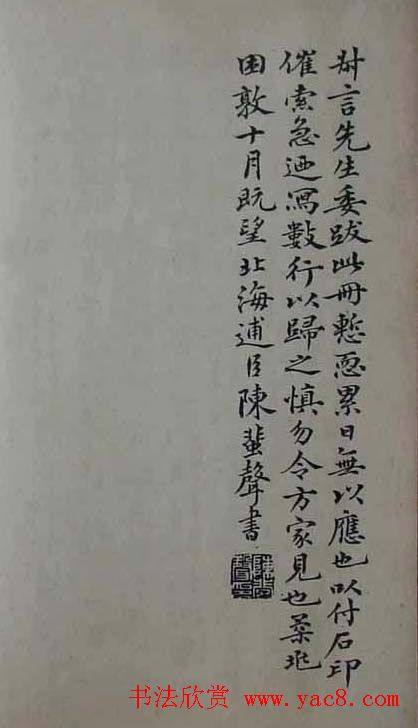 言先生委跋此冊慙恧累日無以應也以付石印
催索急迺寫數行以歸之慎勿令方家見也柔兆
困敦十月既望北海逋臣陳蜚聲書
书法欣赏 www.yac8.com